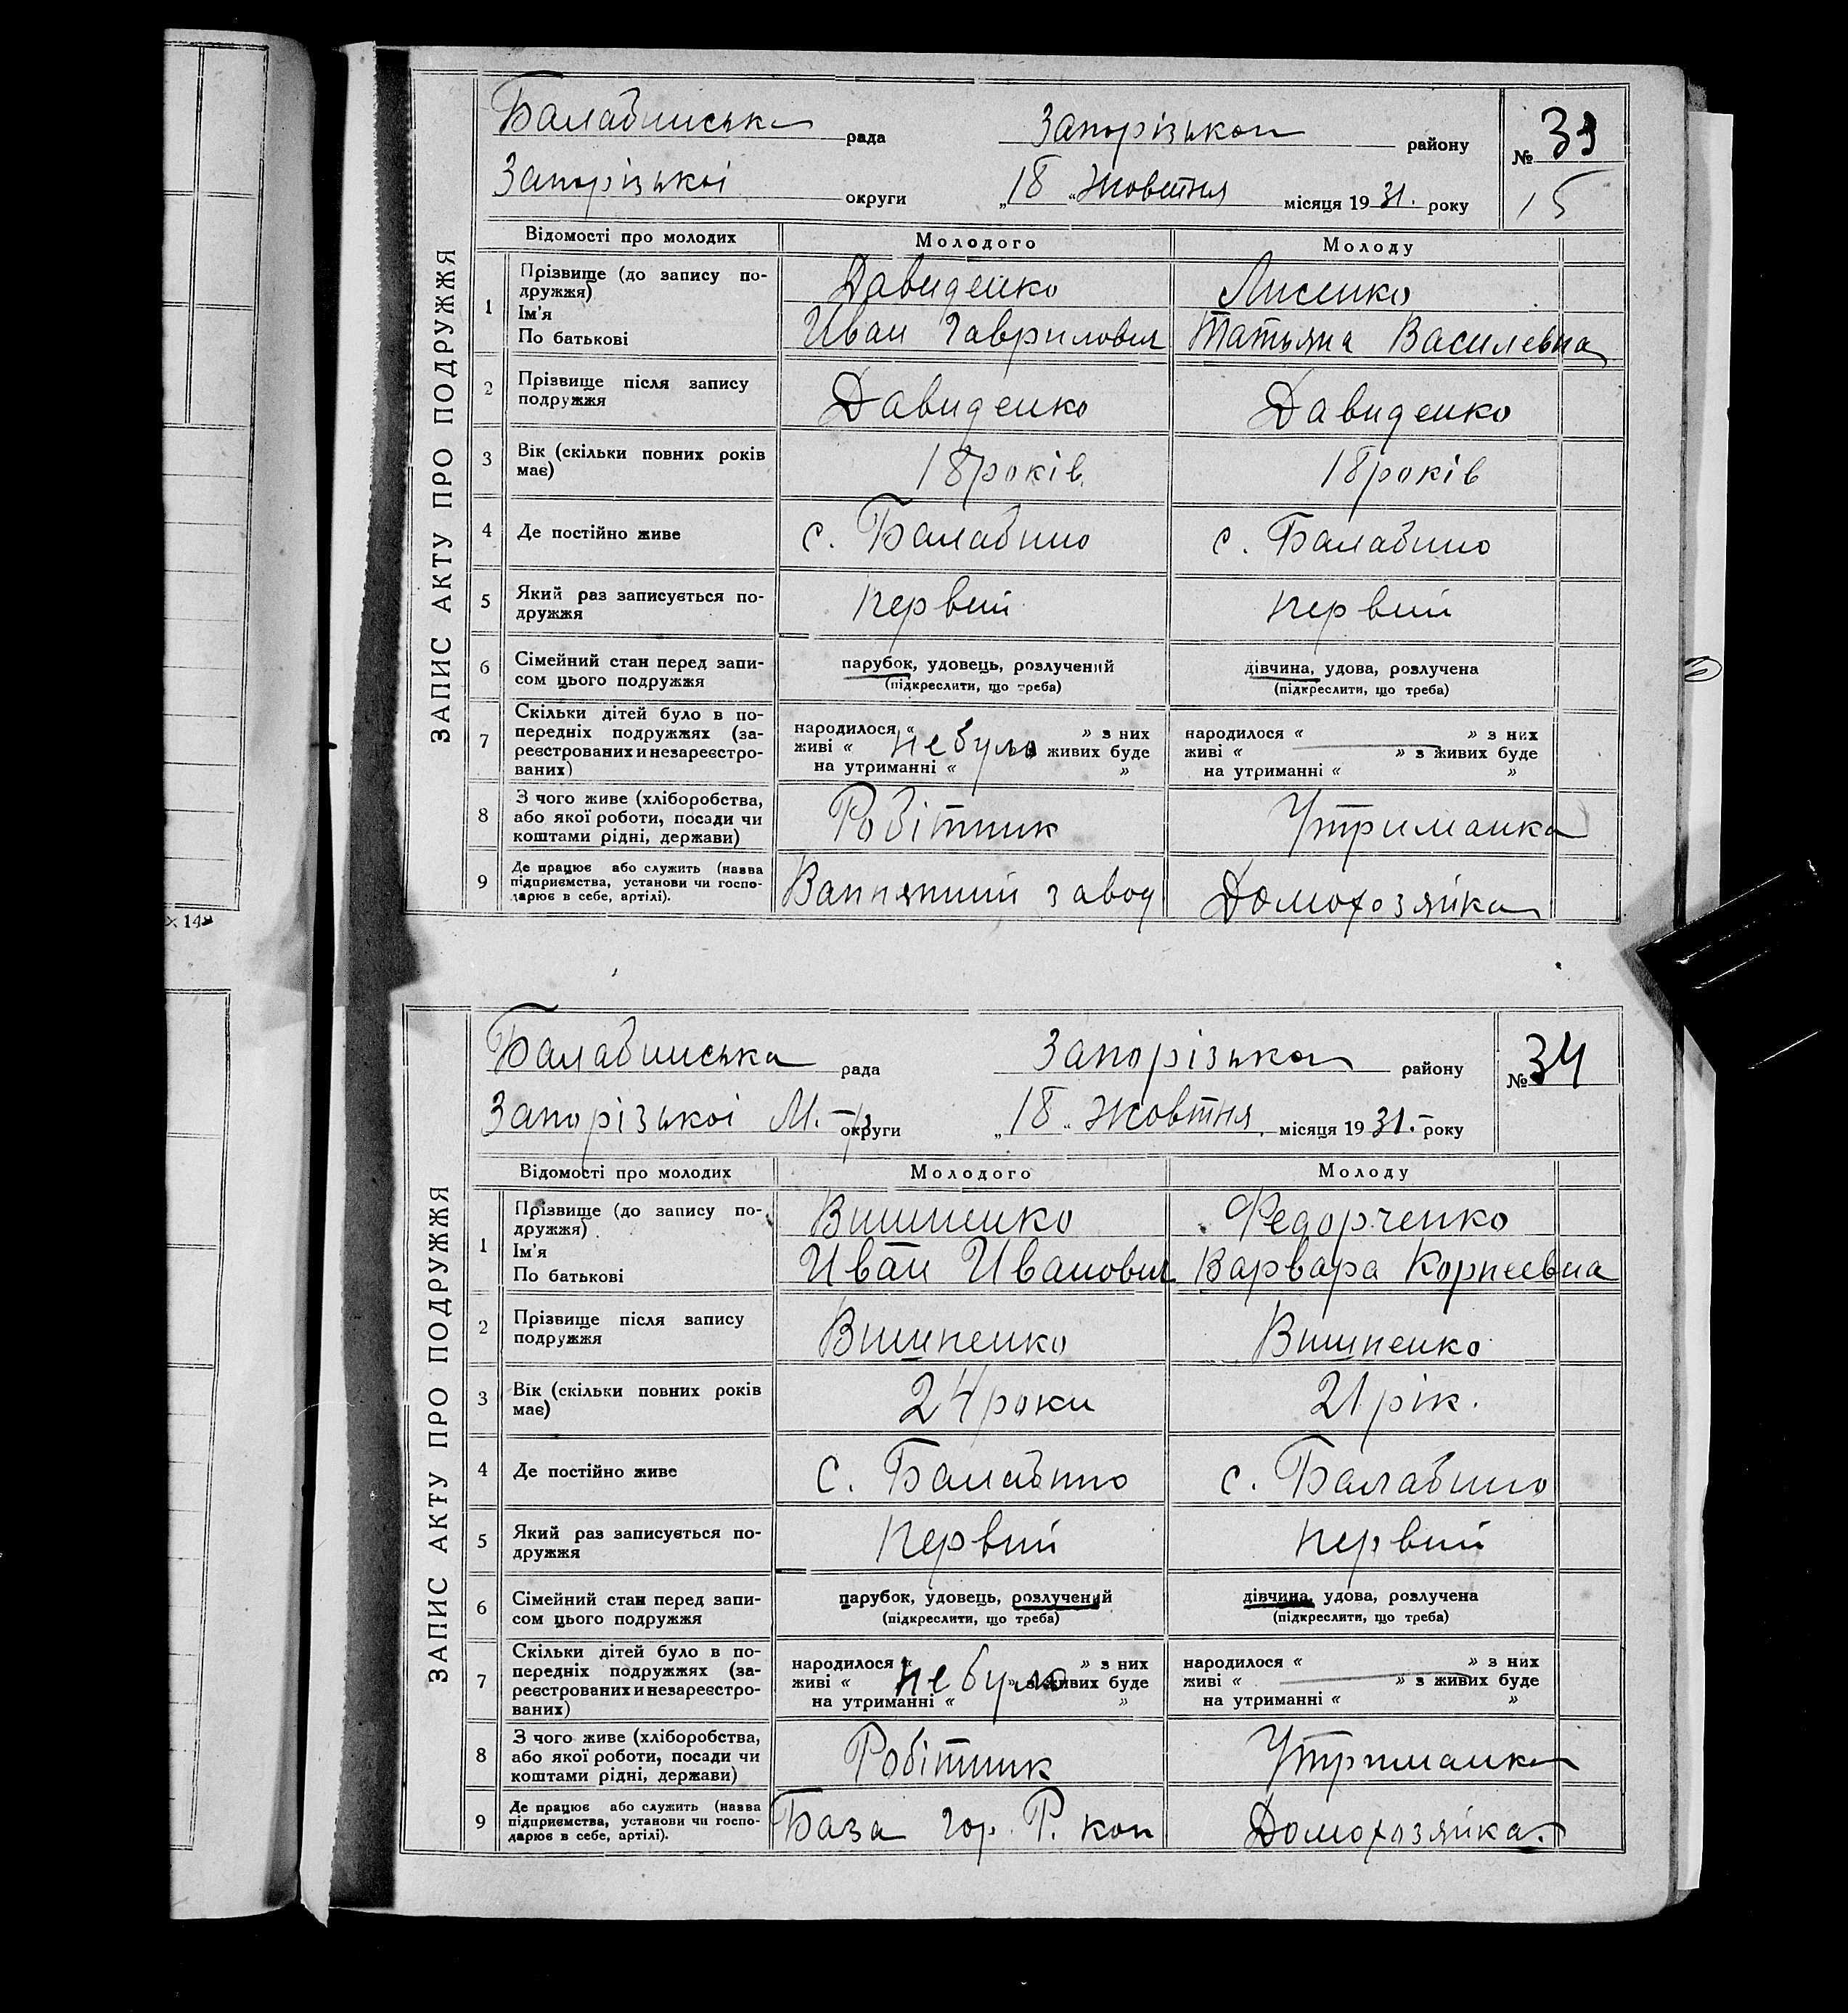 ЗАПИС АКТУ ПРО ПОДРУЖЖЯ
Балабинська рада Запорізького району № 33
Запорізької округи „18“ Жовтня місяця 1931. року 15
Відомості про молодих Молодого Молоду
1 Прізвище (до запису по-
дружжя) Давиденко Лисенко
Ім'я
По батькові Иван Гаврилович Татьяна Василевна
2 Прізвище після запису
подружжя Давиденко Давиденко
3 Вік (скільки повних років
має) 18 років. 18 років
4 Де постійно живе с. Балабино с. Балабино
5 Який раз записується по-
дружжя первий первий
6 Сімейний стан перед запи-
сом цього подружжя
парубок, удовець, розлучений
(підкреслити, що треба)
дівчина, удова, розлучена
(підкреслити, що треба)
7 Скільки дітей було в по-
передніх подружжях (за-
реєстрованих и незареєстро-
ваних)
народилося “ » з них
живі “ не було з живих буде
на утриманні “ »
народилося “ » з них
живі “ » з живих буде
на утриманні “ »
8 З чого живе (хліборобства,
або якої роботи, посади чи
коштами рідні, держави) Робітник Утриманка
9 Де працює або служить (назва
підприємства, установи чи госпо-
дарює в себе, артілі). Вапняний завод Домохозяйка
× 148
ЗАПИС АКТУ ПРО ПОДРУЖЖЯ
Балабинська рада Запорізького району № 34
Запорізької М. округи „18“ Жовтня місяця 1931. року
Відомості про молодих Молодого Молоду
1 Прізвище (до запису по-
дружжя) Вишненко Федорченко
Ім'я
По батькові Иван Иванович Варвара Корнеевна
2 Прізвище після запису
подружжя Вишненко Вишненко
3 Вік (скільки повних років
має) 24 роки 21 рік.
4 Де постійно живе с. Балабино с. Балабино
5 Який раз записується по-
дружжя первий первий
6 Сімейний стан перед запи-
сом цього подружжя
парубок, удовець, розлучений
(підкреслити, що треба)
дівчина, удова, розлучена
(підкреслити, що треба)
7 Скільки дітей було в по-
передніх подружжях (за-
реєстрованих и незареєстро-
ваних)
народилося “ » з них
живі “ не було » з живих буде
на утриманні “ »
народилося “ » з них
живі “ » з живих буде
на утриманні “ »
8 З чого живе (хліборобства,
або якої роботи, посади чи
коштами рідні, держави) Робітник Утриманка
9 Де працює або служить (назва
підприємства, установи чи госпо-
дарює в себе, артілі). База Гор. Р. коп Домохозяйка.